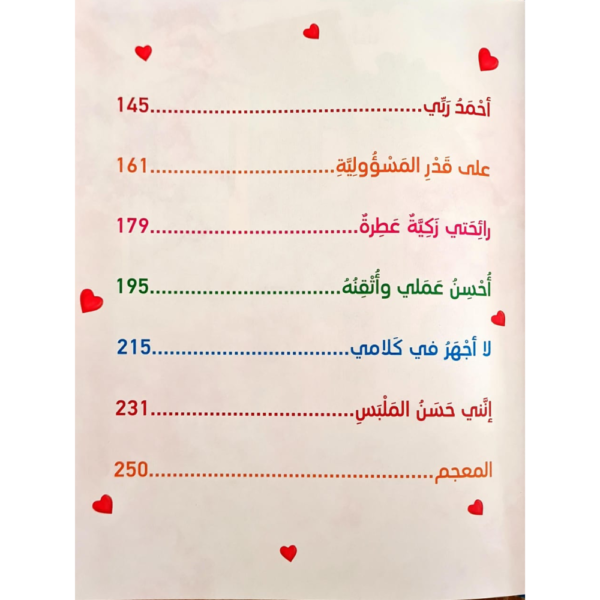 أحْمَدُ رَبِّي..............................................145
على قَدْرِ المَسْؤُولِيَّةِ...............................161
رائِحَتي زَكِيَّةٌ عَطِرةٌ...................................179
أُحْسِنُ عَمَلي وأُتْقِنُهُ................................195
لا أجْهَرُ في كَلامي.................................215
إنَّني حَسَنُ المَلْبَسِ...................................231
المعجم................................................250